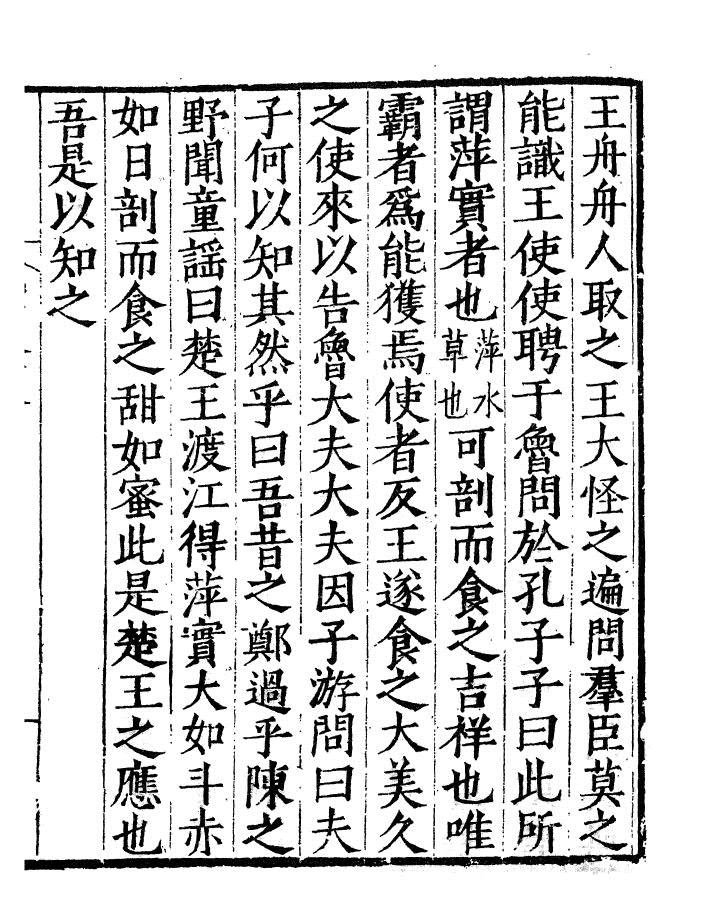 王舟舟人取之王大怪之遍問羣臣莫之
能識王使使聘于魯問於孔子子曰此所
謂萍實者也萍水草也可剖而食之吉祥也唯
霸者爲能獲焉使者反王遂食之大美久
之使來以告魯大夫大夫因子游問曰夫
子何以知其然乎曰吾昔之鄭過乎陳之
野聞童謡曰楚王渡江得萍實大如斗赤
如日剖而食之甜如蜜此是楚王之應也
吾是以知之